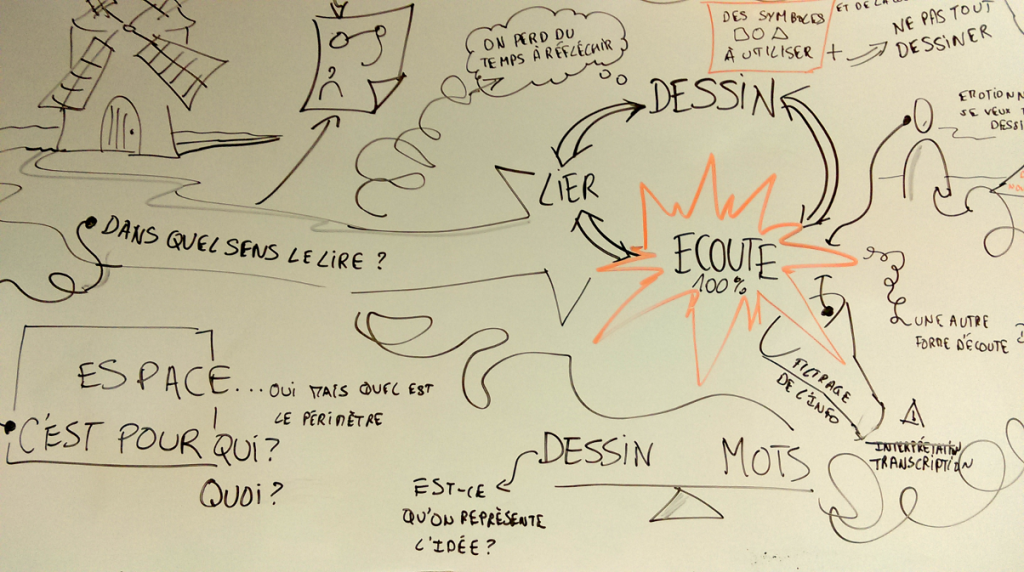 ON PERD DU
TEMPS À RÉFLÉCHIR
DES SYMBOLES
À UTILISER
+
ET DE LA
NE PAS TOUT
DESSINER
DESSIN
LIER
ECOUTE
100%
SE VEUX
DESSI
DANS QUEL SENS LE LIRE ?
UNE AUTRE
FORME D'ÉCOUTE
FILTRAGE
DE L'INFO
ESPACE... OUI MAIS QUEL EST
LE PÉRIMÈTRE
C'EST POUR QUI?
QUOI?
DESSIN MOTS
EST-CE
QU'ON REPRÉSENTE
L'IDÉE ?
!
INTERPRÉTATION
TRANSCRIPTION